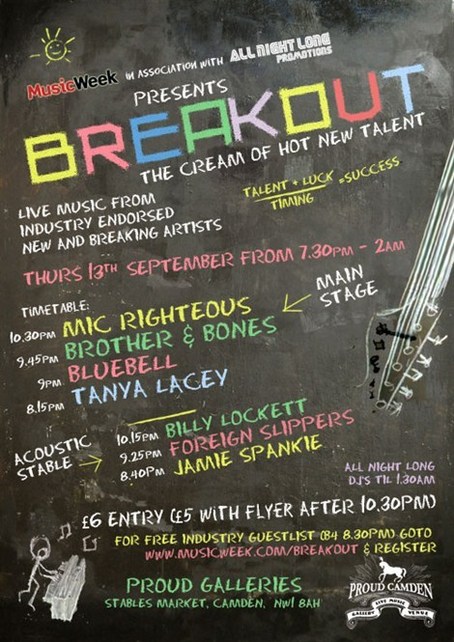 MusicWeek IN ASSOCIATION WITH ALL NIGHT LONG
PROMOTIONS
PRESENTS
BREAKOUT
THE CREAM OF HOT NEW TALENT
TALENT + LUCK = SUCCESS
TIMING
LIVE MUSIC FROM
INDUSTRY ENDORSED
NEW AND BREAKING ARTISTS
THURS 13TH SEPTEMBER FROM 7.30PM - 2AM
TIMETABLE:
MAIN
STAGE
10.30PM MIC RIGHTEOUS
9.45PM BROTHER & BONES
9PM. BLUEBELL
8.15PM TANYA LACEY
ACOUSTIC
STABLE
10.15PM BILLY LOCKETT
9.25PM FOREIGN SLIPPERS
8.40PM JAMIE SPANKIE
ALL NIGHT LONG
DJ'S TIL 1.30AM
£6 ENTRY (£5 WITH FLYER AFTER 10.30PM)
FOR FREE INDUSTRY GUESTLIST (B4 8.30PM) GOTO
WWW.MUSICWEEK.COM/BREAKOUT & REGISTER
PROUD GALLERIES
STABLES MARKET, CAMDEN, NW1 8AH
PROUD CAMDEN
GALLERY LIVE MUSIC VENUE